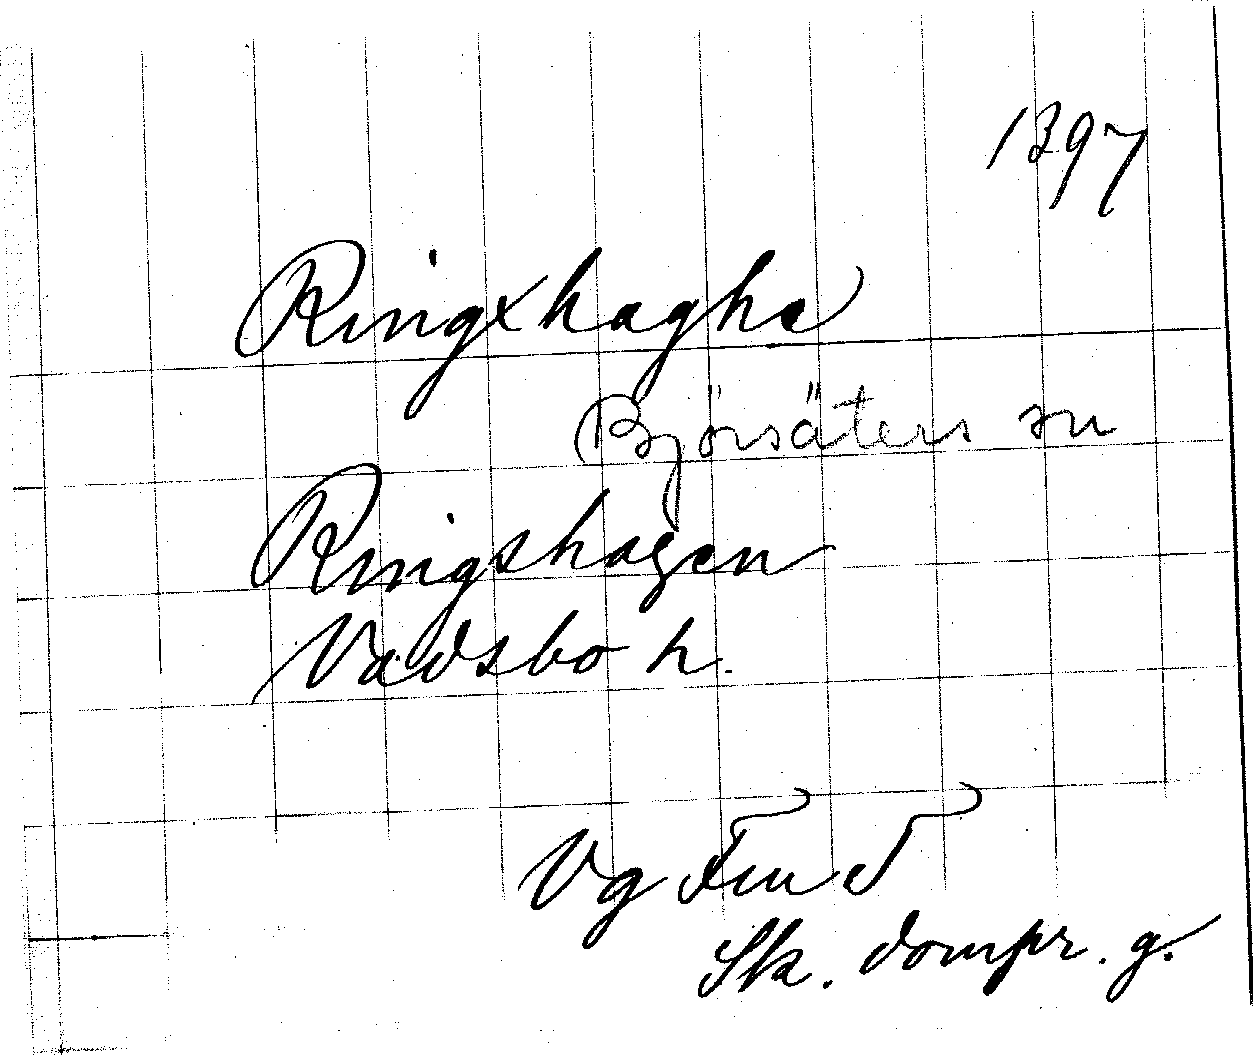 1397
Ringxhagha
Björsäters sn
Ringshagen
Vadsbo h.
Vg FmT
Sk. dompr. g.